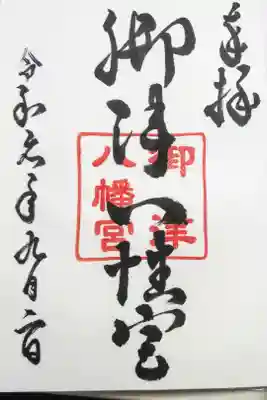 奉拝
御津八幡宮
御津
八幡宮
令和六年九月日